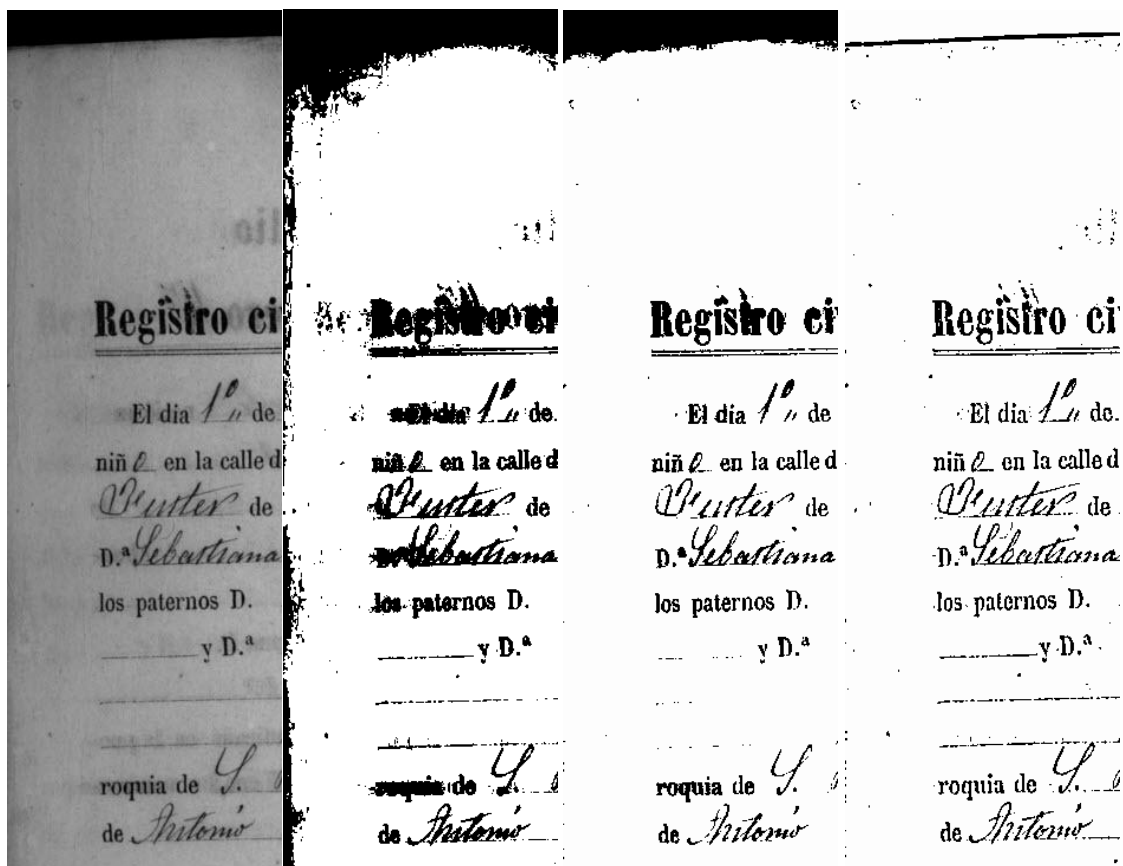 Registro ci
El dia 1º de
niñ en la calle d
Fuster de
D.ª Sebastiana
los paternos D.
y D.ª
roquia de S.
de Antonio
Registro ci
El dia 1º de
niñ en la calle d
Fuster de
D.ª Sebastiana
los paternos D.
y D.ª
roquia de S.
de Antonio
Registro ci
El dia 1º de
niñ en la calle d
Fuster de
D.ª Sebastiana
los paternos D.
y D.ª
roquia de S.
de Antonio
Registro ci
El dia 1º de
niñ en la calle d
Fuster de
D.ª Sebastiana
los paternos D.
y D.ª
roquia de S.
de Antonio